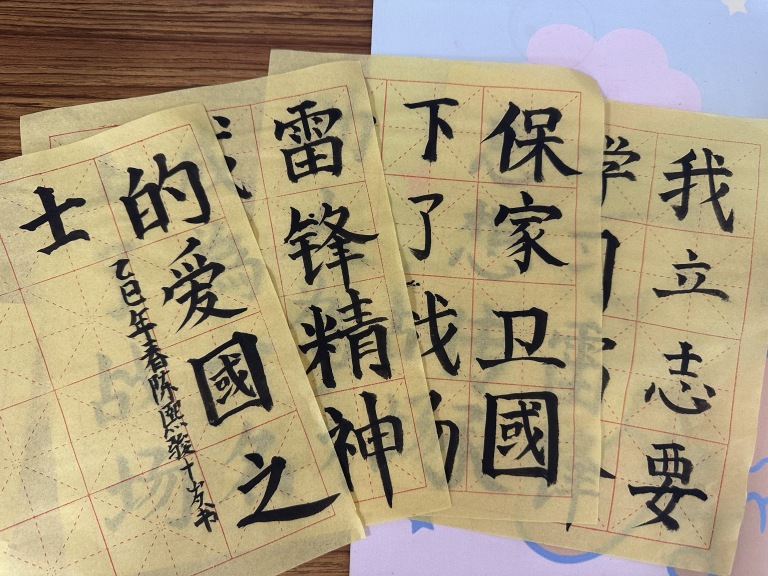 我立志要
学
保家卫國
下了
雷锋精神
的爱國之
士
乙巳年春陈熙骏十岁书